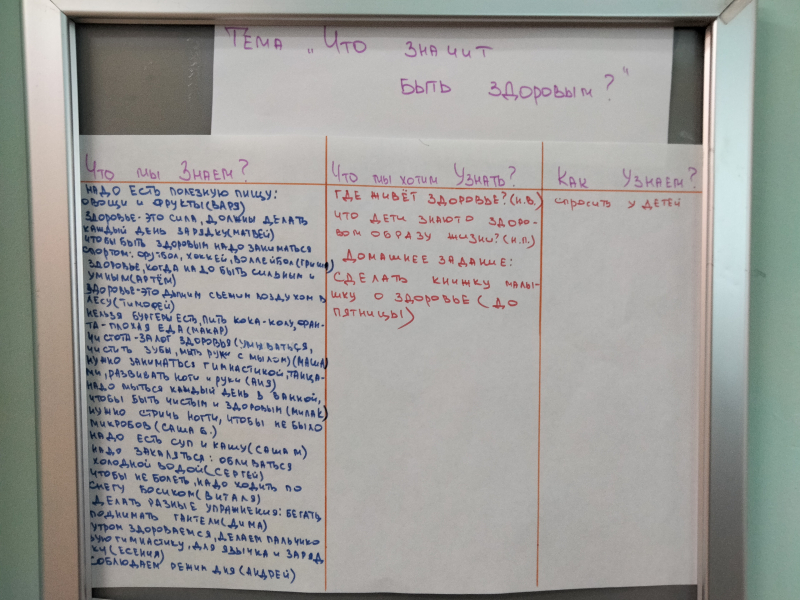 Тема „Что значит
быть здоровым?"
Что мы Знаем?
надо есть полезную пищу:
овощи и фрукты(Варя)
здоровье-это сила, должны делать
каждый день зарядку(Матвей)
чтобы быть здоровым надо заниматься
спортом: футбол, хоккей, воллейбол(Гриша)
здоровье, когда надо быть сильным и
умным(Артём)
здоровье-это дышим свежим воздухом в
лесу(Тимофей)
нельзя бургеры есть, пить кока-колу, фан-
та-плохая еда(Макар)
чистота-залог здоровья(умываться,
чистить зубы, мыть руки с мылом)(Маша)
нужно заниматься гимнастикой, танца-
ми, развивать ноги и руки(Аня)
надо мыться каждый день в ванной,
чтобы быть чистым и здоровым(Милак)
нужно стричь ногти, чтобы не было
микробов(Саша Б.)
надо есть суп и кашу(Саша М)
надо закаляться: обливаться
холодной водой(Сергей)
чтобы не болеть, надо ходить по
снегу босиком(Виталя)
делать разные упражнения: бегать
поднимать гантели(Дима)
утром здороваемся, делаем пальчико
вую гимнастику, для язычка и заряд
ку(Есения)
соблюдаем режим дня(Андрей)
Что мы хотим Узнать?
где живёт здоровье?(И.В.)
что дети знают о здоро-
вом образу жизни?(Н.П.)
Домашнее задание:
сделать книжку малы-
шку о здоровье(до
пятницы)
Как Узнаем?
спросить у детей